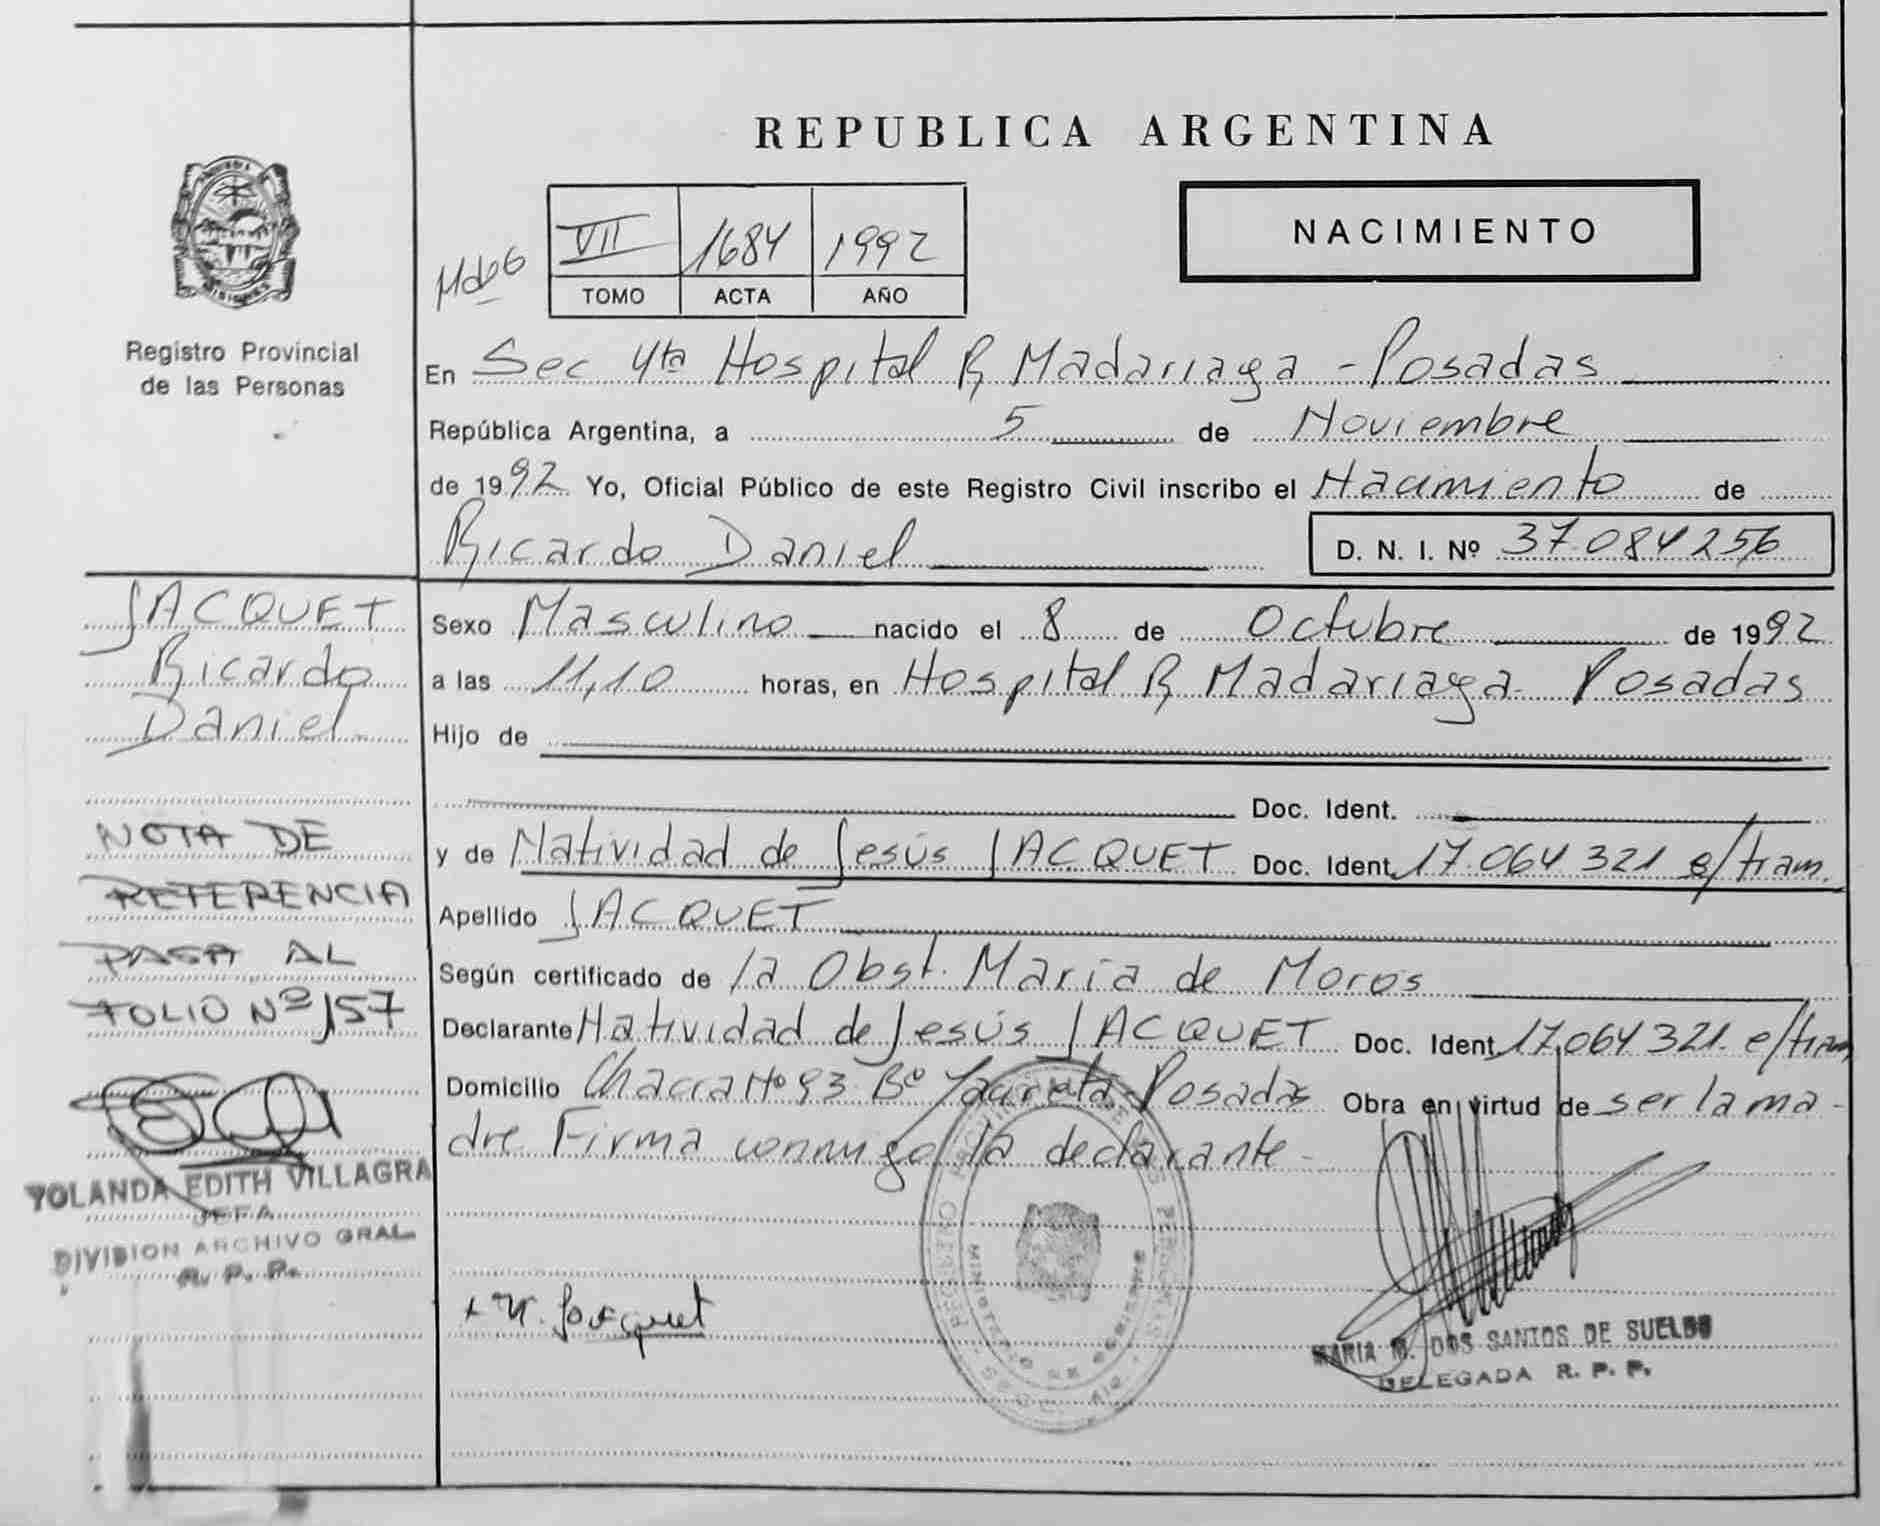 REPUBLICA ARGENTINA
NACIMIENTO
VII 1684 1992
TOMO ACTA AÑO
Registro Provincial
de las Personas
En Sec 4ta Hospital R Madariaga - Posadas
República Argentina, a 5 de Noviembre
de 1992 Yo, Oficial Público de este Registro Civil inscribo el Nacimiento de
Ricardo Daniel D. N. I. Nº 37.084256
JACQUET
Ricardo
Daniel
Sexo Masculino nacido el 8 de Octubre de 1992
a las 11,10 horas, en Hospital R Madariaga - Posadas
Hijo de
Doc. Ident.
y de Natividad de Jesús JACQUET Doc. Ident. 17.064 321 e/tram.
Apellido JACQUET
Según certificado de la Obst. María de Moros
Declarante Natividad de Jesús JACQUET Doc. Ident. 17.064 321. e/tram
Domicilio Chacra Nº 93 Bº Yacireta Posadas Obra en virtud de ser la ma-
dre Firma conmigo la declarante -
NOTA DE
REFERENCIA
PASA AL
FOLIO Nº 157
YOLANDA EDITH VILLAGRA
JEFA
DIVISION ARCHIVO GRAL.
R. P. P.
+ N. Jacquet
MARIA M. DOS SANTOS DE SUELDO
DELEGADA R. P. P.